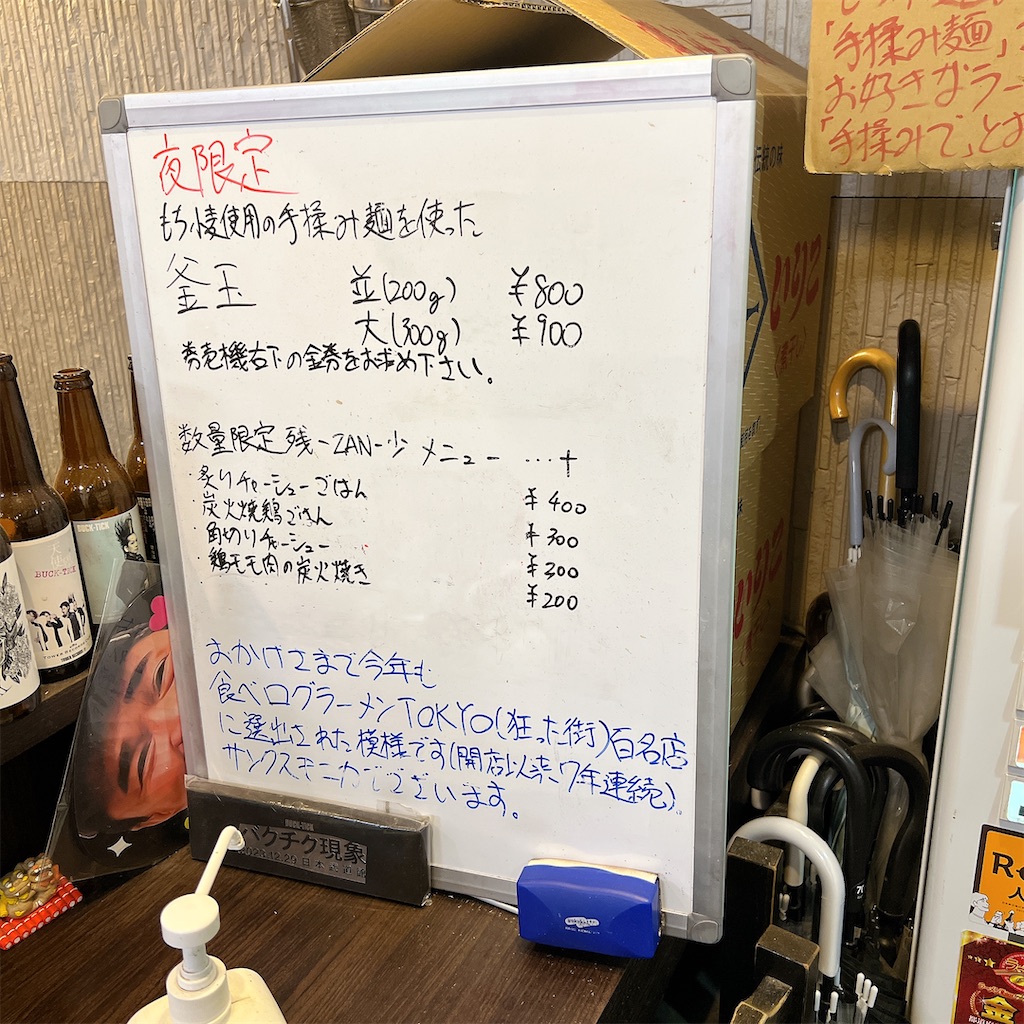 夜限定
もち小麦使用の手揉み麺を使った
釜玉 並(200g) ¥800
大(300g) ¥900
券売機右下の金券をお求め下さい。
数量限定 残-ZAN-少 メニュー …十
・炙りチャーシューごはん ¥400
・炭火焼鶏ごはん ¥300
・角切りチャーシュー ¥300
・鶏モモ肉の炭火焼き ¥200
おかげさまで今年も
食べログラーメンTOKYO(狂った街)百名店
に選出された模様です(開店以来7年連続)。
サンクスモニカでございます。
「手揉み麺」
お好きなラー
「手揉みで」とお
伝統の味
いりこ
いりこ
BUCK-TICK
BUCK-TICK
BUCK-TICK
バクチク現象
2023.12.29 日本武道館